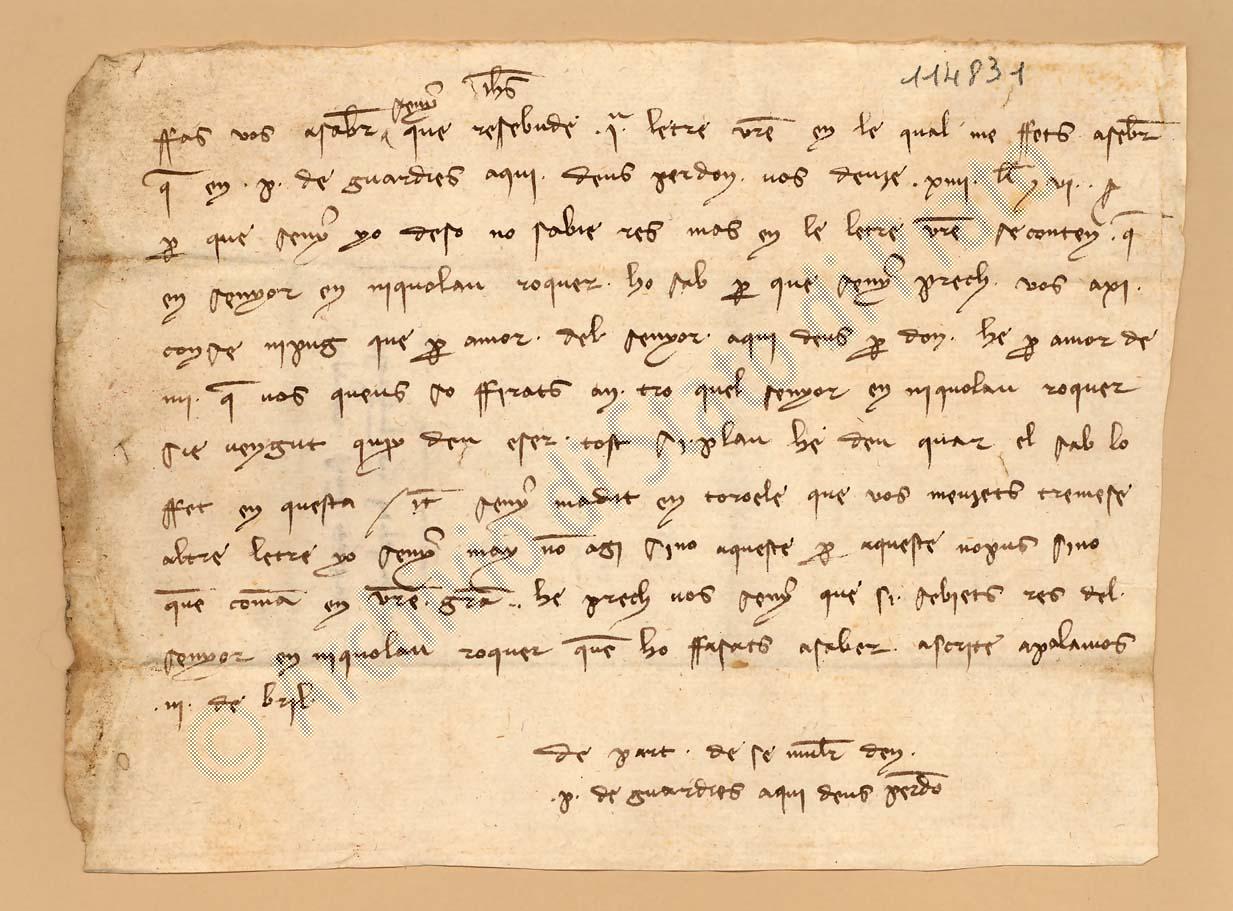 114831
Jhs
seny
ffas vos asabr que resebude .i.a letre vre en le qual me ffets asebr
q en .p. de guardies aqui . deus perdon . vos deuze . xiiii . ll y vi . s
p que seny yo deso no sabie res mas en le letre vre se conten . q
en senyor en niquolau roquer . ho sab p que seny prech . vos axi .
con se nipug que p amor . del senyor . aqui deus p don . he p amor de
mi . q vos queus so ffirats an . tro quel senyor en niquolau roquer
sie vengut quy deu eser . tost si . plau he deu quar el sab lo
ffet en questa / it seny madit en toroele que vos meuzets tremese
altre letre yo seny may no agi sino aqueste p aqueste nopus sino
que coma en vre . gra . he prech vos seny que si . sebiets res del .
senyor en niquolau roquer que ho ffasats asaber . ascrite apalamos
. iii . de bril
de part . de se mulr den .
. p . de guardies aqui deus perdo
© Archivio di Stato di Prato